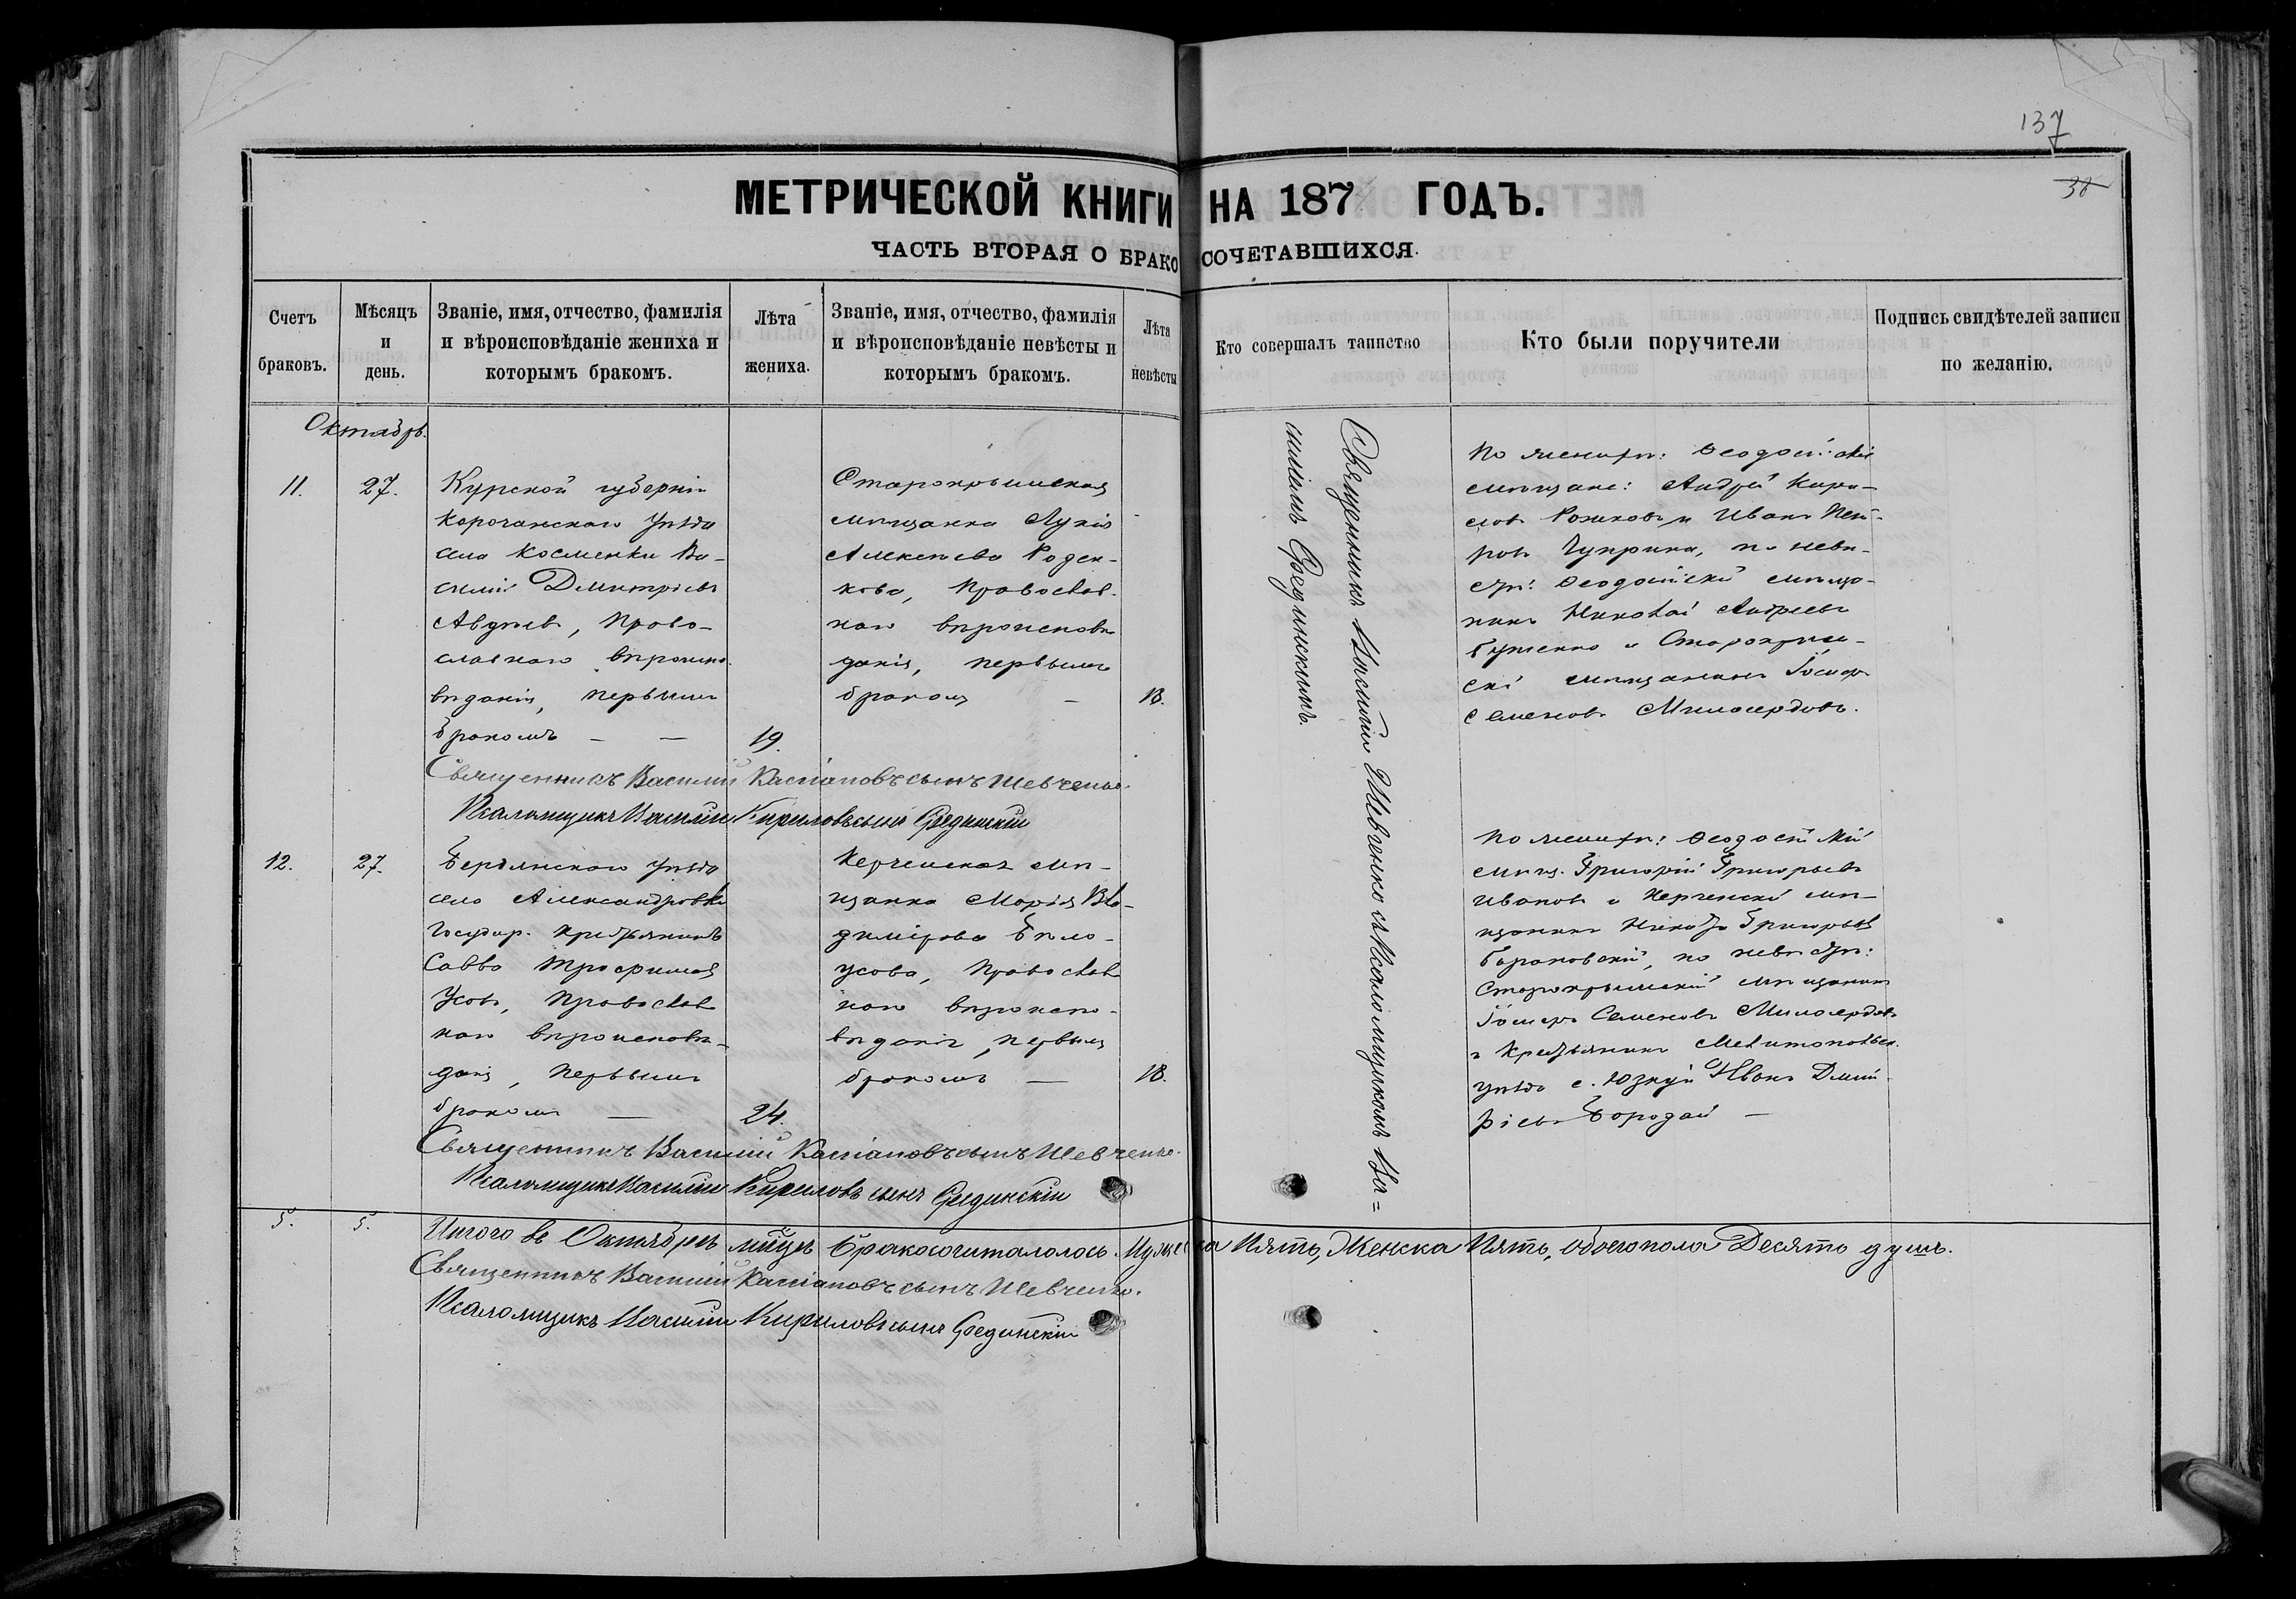 137
38
МЕТРИЧЕСКОЙ КНИГИ НА 187 ГОДЪ.
ЧАСТЬ ВТОРАЯ О БРАКОСОЧЕТАВШИХСЯ.
Счетъ браковъ.
Мѣсяцъ и день.
Званіе, имя, отчество, фамилія и вѣроисповѣданіе жениха и которымъ бракомъ.
Лѣта жениха.
Званіе, имя, отчество, фамилія и вѣроисповѣданіе невѣсты и которымъ бракомъ.
Лѣта невѣсты
Кто совершалъ таинство
Кто были поручители
Подпись свидѣтелей записи по желанію.
Октябрь.
11.
27.
Курской губерніи
Корочанскаго уѣзда
села Косменки Ва-
силій Димитріевъ
Авдѣевъ, Право-
славнаго вѣроиспо-
вѣданія, первымъ
бракомъ — —
19.
Старокрымская
мѣщанка Лукія
Алексѣева Роден-
кова, Православ-
наго вѣроисповѣ
данія, первымъ
бракомъ —
18.
Священникъ Василій Шевченко съ Псаломщикомъ Ва=
силіемъ Срединскимъ.
По женихѣ: Ѳеодосійскіе
мѣщане: Андрей Кири-
ловъ Рожковъ и Иванъ Пет-
ровъ Чуприна, по невѣ-
стѣ: Ѳеодосійскій мѣща-
нинъ Николай Андреевъ
Гуженко и Старокрым-
скі мѣщанинъ Іосифъ
Семеновъ Милосердовъ.
Священникъ Василій Кассіановъ сынъ Шевченко.
Псаломщикъ Василій Кириловъ сынъ Срединскій
12.
27.
Бердянскаго уѣзда
села Александровки
Государ. крестьянинъ
Савва Трофимовъ
Усовъ, Православ
наго вѣроисповѣ-
данія, первымъ
бракомъ —
24.
Керченская мѣ-
щанка Марія Вла-
димірова Бѣло-
усова, Православ
наго вѣроиспо-
вѣданія, первымъ
бракомъ —
18.
По женихѣ: Ѳеодосійскій
мѣщ. Григорій Григорьевъ
Ивановъ и Керченскі мѣ-
щанинъ Николай Григорьевъ
Барановскій, по невѣстѣ:
Старокрымскій мѣщанинъ
Іосифъ Семеновъ Милосердовъ
и Крестьянинъ Мелитопольск.
уѣзда с. Юзкуи Иванъ Дмит-
ріевъ Бородай —
Священникъ Василій Кассіановъ сынъ Шевченко.
Псаломщикъ Василій Кириловъ сынъ Срединскій
5.
5.
Итого въ Октябрѣ мѣсцѣ бракосочиталолось. Мужеска Пять, Женска Пять, обоего пола Десять душъ.
Священникъ Василій Кассіановъ сынъ Шевченко.
Псаломщикъ Василій Кириловъ сынъ Срединскій